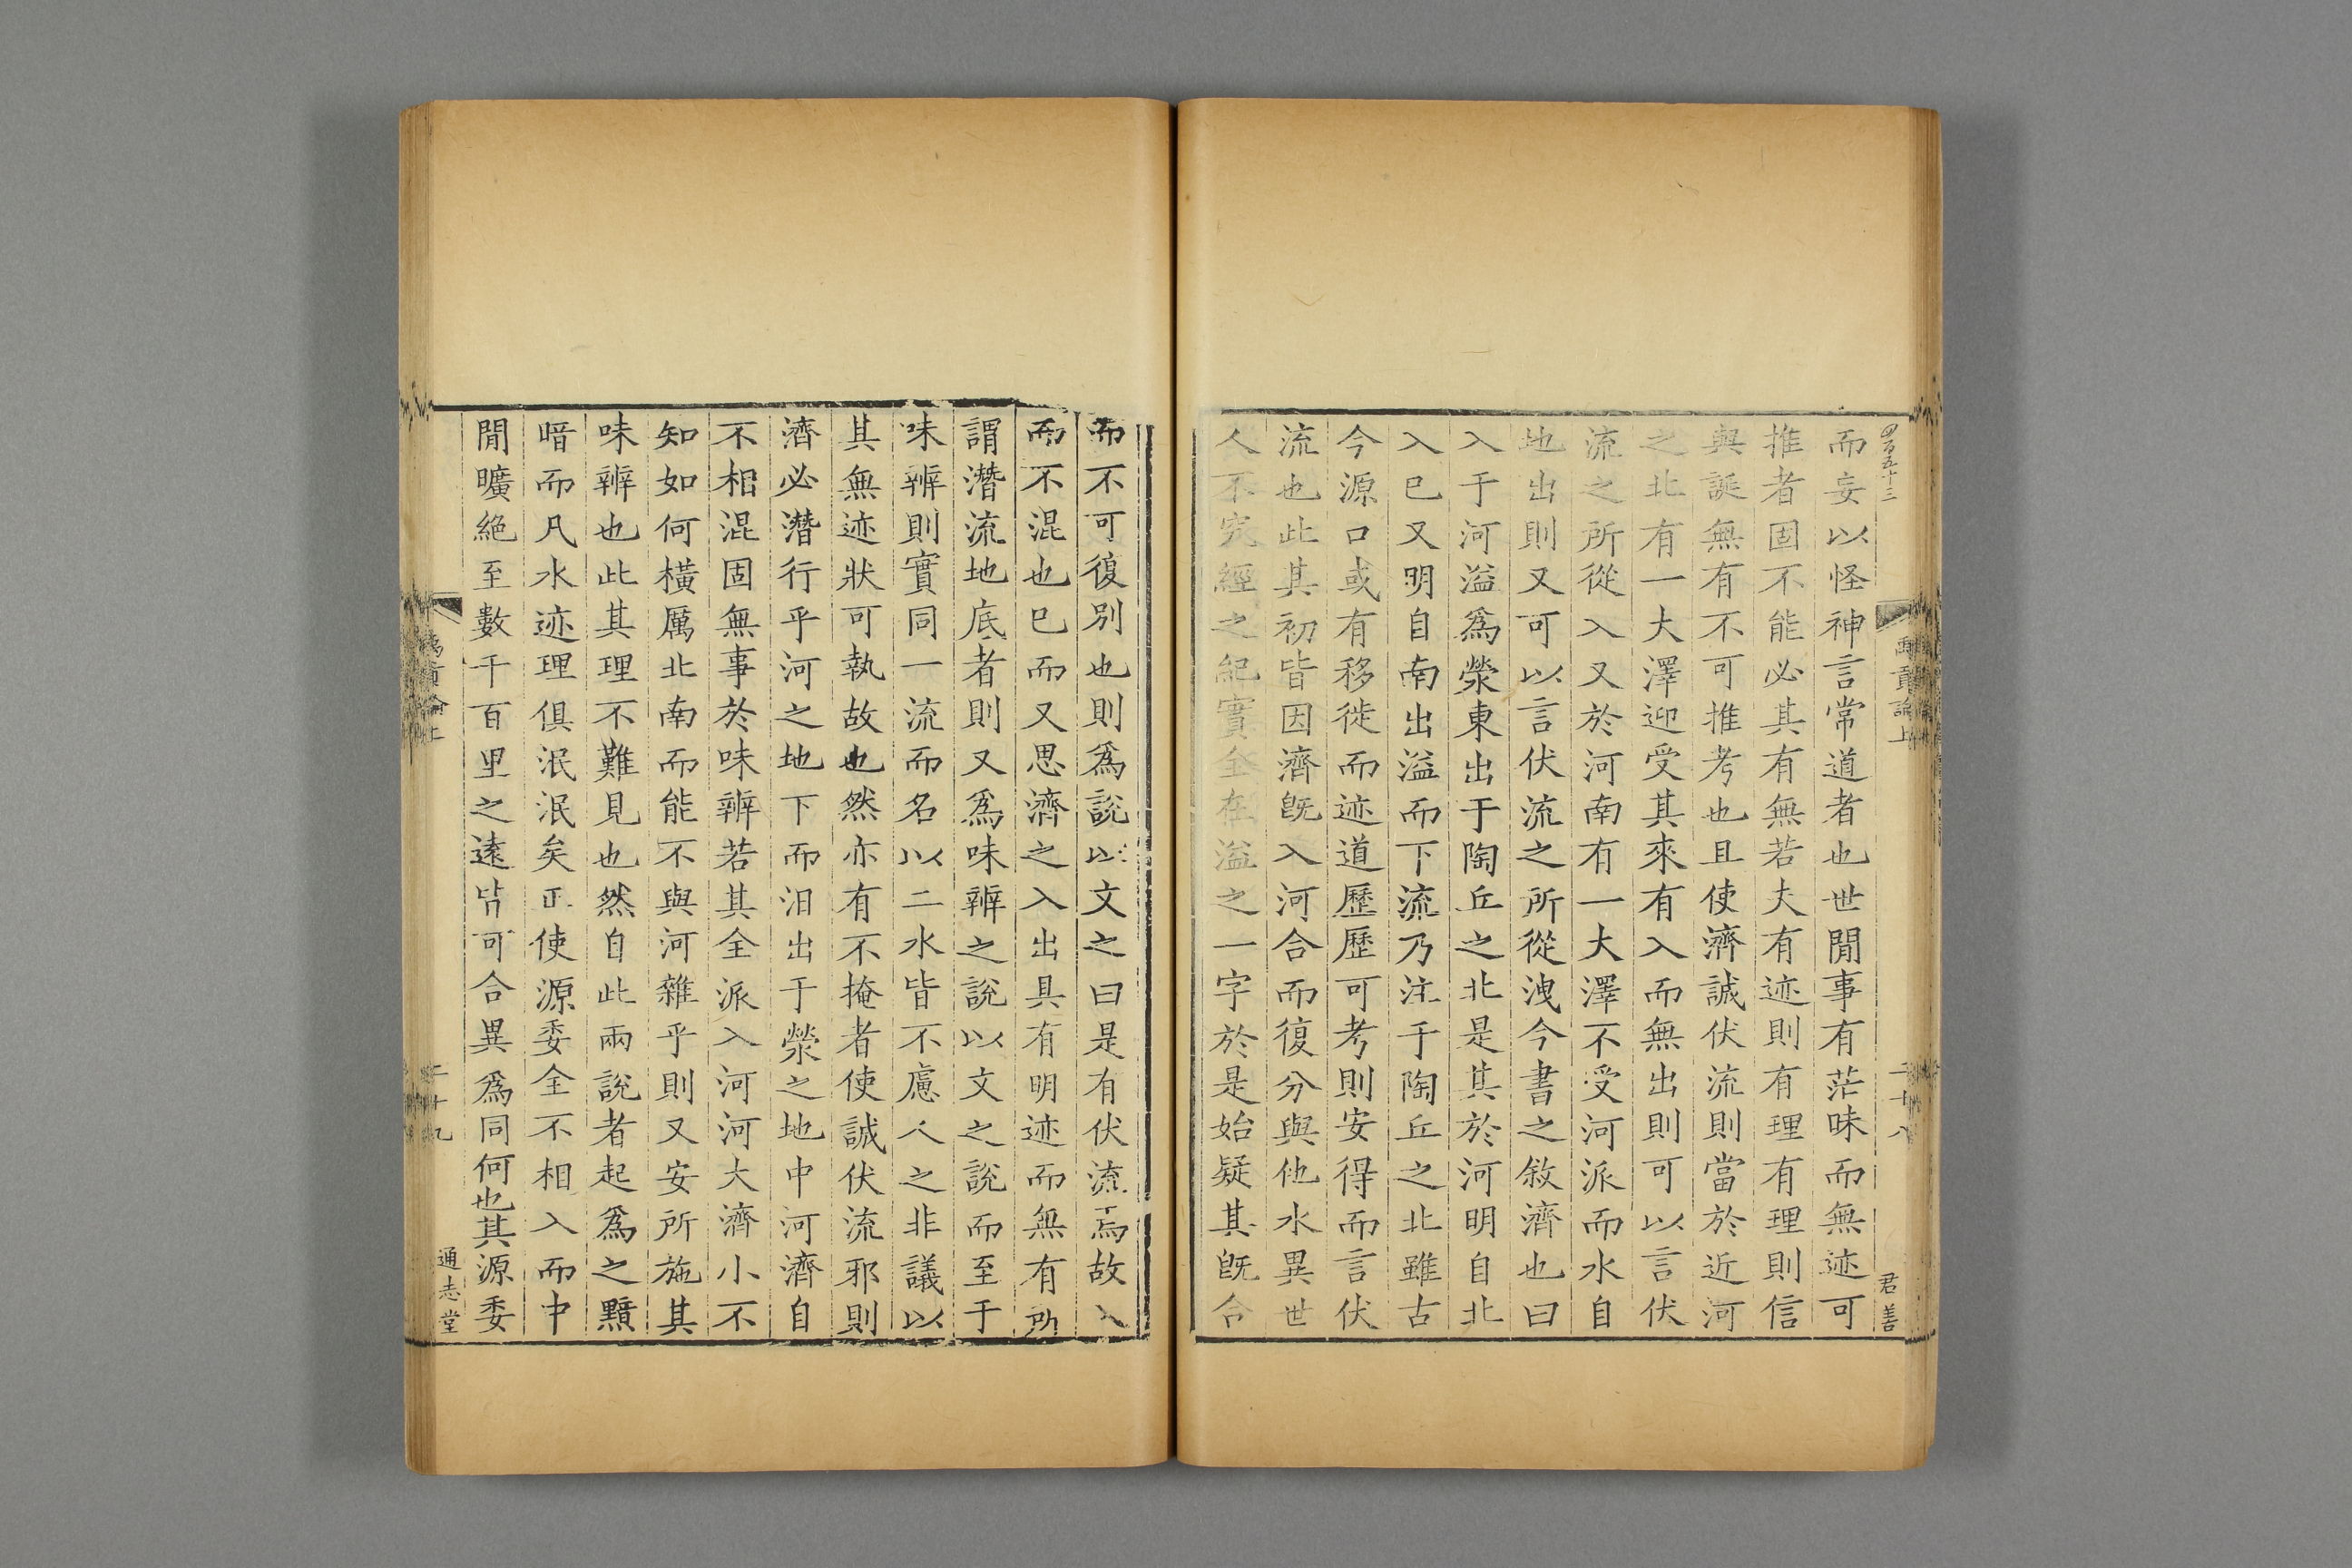 四百五十三
禹貢論上
二十八
君善
而妄以怪神言常道者也世閒事有茫昧而無迹可
推者固不能必其有無若夫有迹則有理有理則信
與誕無有不可推考也且使濟誠伏流則當於近河
之北有一大澤迎受其來有入而無出則可以言伏
流之所從入又於河南有一大澤不受河派而水自
地出則又可以言伏流之所從洩今書之敘濟也曰
入于河溢爲滎東出于陶丘之北是其於河明自北
入巳又明自南出溢而下流乃注于陶丘之北雖古
今源口或有移徙而迹道歷歷可考則安得而言伏
流也此其初皆因濟旣入河合而復分與他水異世
人不究經之紀實全在溢之一字於是始疑其旣合
而不可復別也則爲說以文之曰是有伏流焉故入
而不混也巳而又思濟之入出具有明迹而無有所
謂潛流地底者則又爲味辨之說以文之說而至于
味辨則實同一流而名以二水皆不慮人之非議以
其無迹狀可執故也然亦有不掩者使誠伏流邪則
濟必潛行乎河之地下而汩出于滎之地中河濟自
不相混固無事於味辨若其全派入河河大濟小不
知如何橫厲北南而能不與河雜乎則又安所施其
味辨也此其理不難見也然自此兩說者起爲之黯
暗而凡水迹理俱泯泯矣正使源委全不相入而中
閒曠絕至數千百里之遠皆可合異爲同何也其源委
禹貢論上
二十九
通志堂